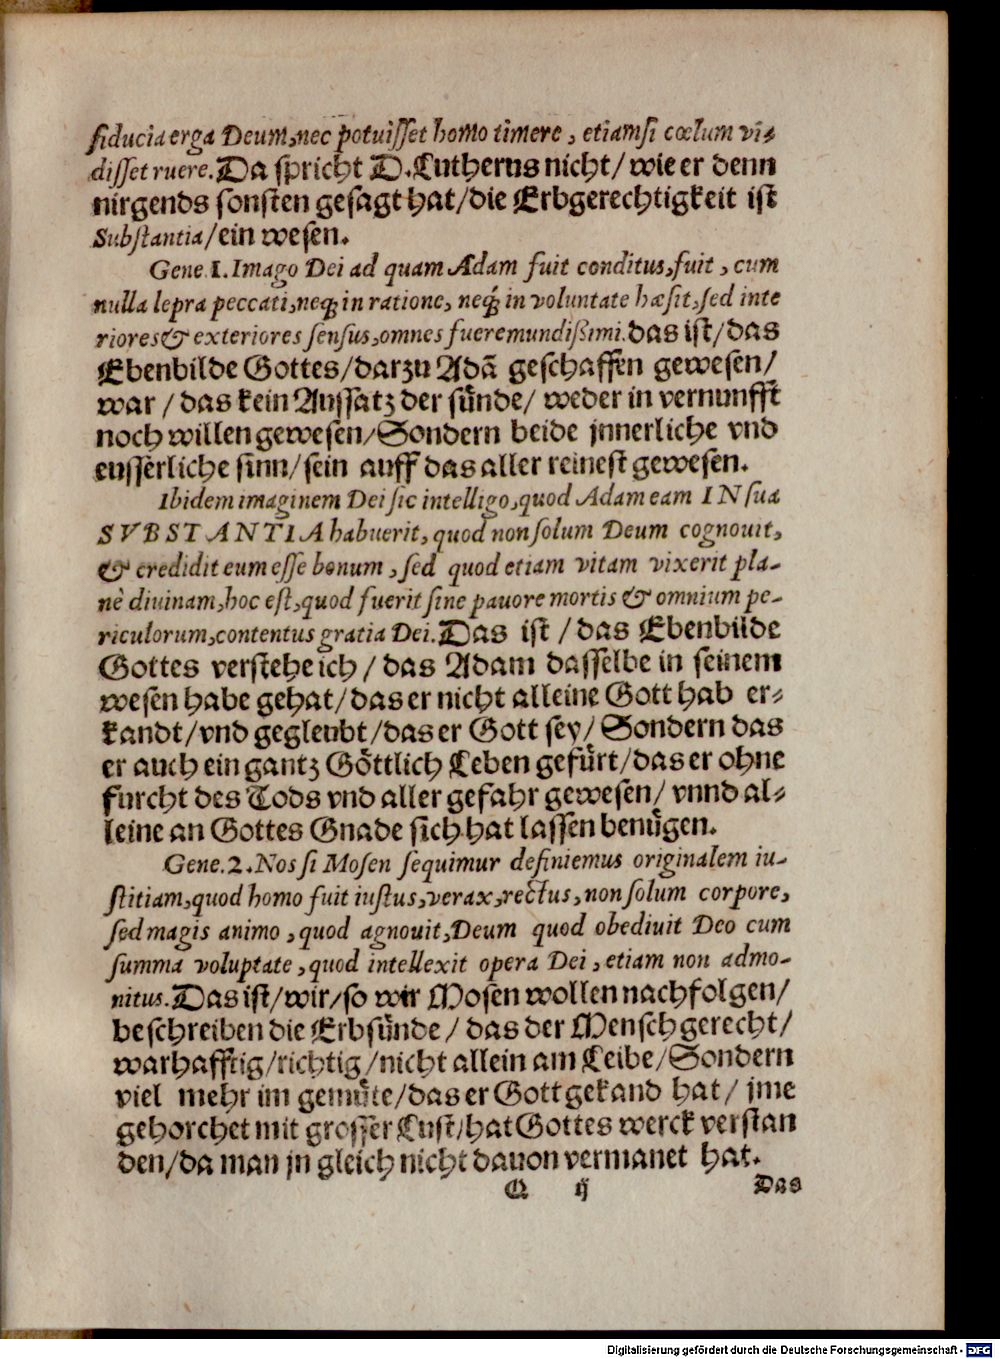 fiducia erga Deum, nec potuisset homo timere, etiamsi cœlum vi-
disset ruere. Da spricht D. Lutherus nicht/ wie er denn
nirgends sonsten gesagt hat/die Erbgerechtigkeit ist
Substantia/ein wesen.
Gene.1. Imago Dei ad quam Adam fuit conditus, fuit, cum
nulla lepra peccati, neq; in ratione, neq; in voluntate hæsit, sed inte
riores & exteriores sensus, omnes fuere mundißimi. das ist/das
Ebenbilde Gottes/darzu Adã geschaffen gewesen/
war / das kein Aussatz der sünde/ weder in vernunfft
noch willen gewesen/Sondern beide jnnerliche vnd
eusserliche sinn/sein auff das aller reinest gewesen.
Ibidem imaginem Dei sic intelligo, quod Adam eam IN sua
SVBSTANTIA habuerit, quod non solum Deum cognouit,
& credidit eum esse bonum, sed quod etiam vitam vixerit pla-
nè diuinam, hoc est, quod fuerit sine pauore mortis & omnium pe-
riculorum, contentus gratia Dei. Das ist / das Ebenbilde
Gottes verstehe ich / das Adam dasselbe in seinem
wesen habe gehat/das er nicht alleine Gott hab er-
kandt/vnd gegleubt/das er Gott sey/ Sondern das
er auch ein gantz Göttlich Leben gefürt/das er ohne
furcht des Tods vnd aller gefahr gewesen/ vnnd al-
leine an Gottes Gnade sich hat lassen benügen.
Gene.2. Nos si Mosen sequimur definiemus originalem iu-
stitiam, quod homo fuit iustus, verax, rectus, non solum corpore,
sed magis animo, quod agnouit, Deum quod obediuit Deo cum
summa voluptate, quod intellexit opera Dei, etiam non admo-
nitus. Das ist/wir/so wir Mosen wollen nachfolgen/
beschreiben die Erbsünde / das der Mensch gerecht/
warhafftig/richtig/nicht allein am Leibe/Sondern
viel mehr im gemüte/das er Gott gekand hat/ jme
gehorchet mit grosser Lust/hat Gottes werck verstan
den/da man jn gleich nicht dauon vermanet hat.
Q ij Das
Digitalisierung gefördert durch die Deutsche Forschungsgemeinschaft - DFG